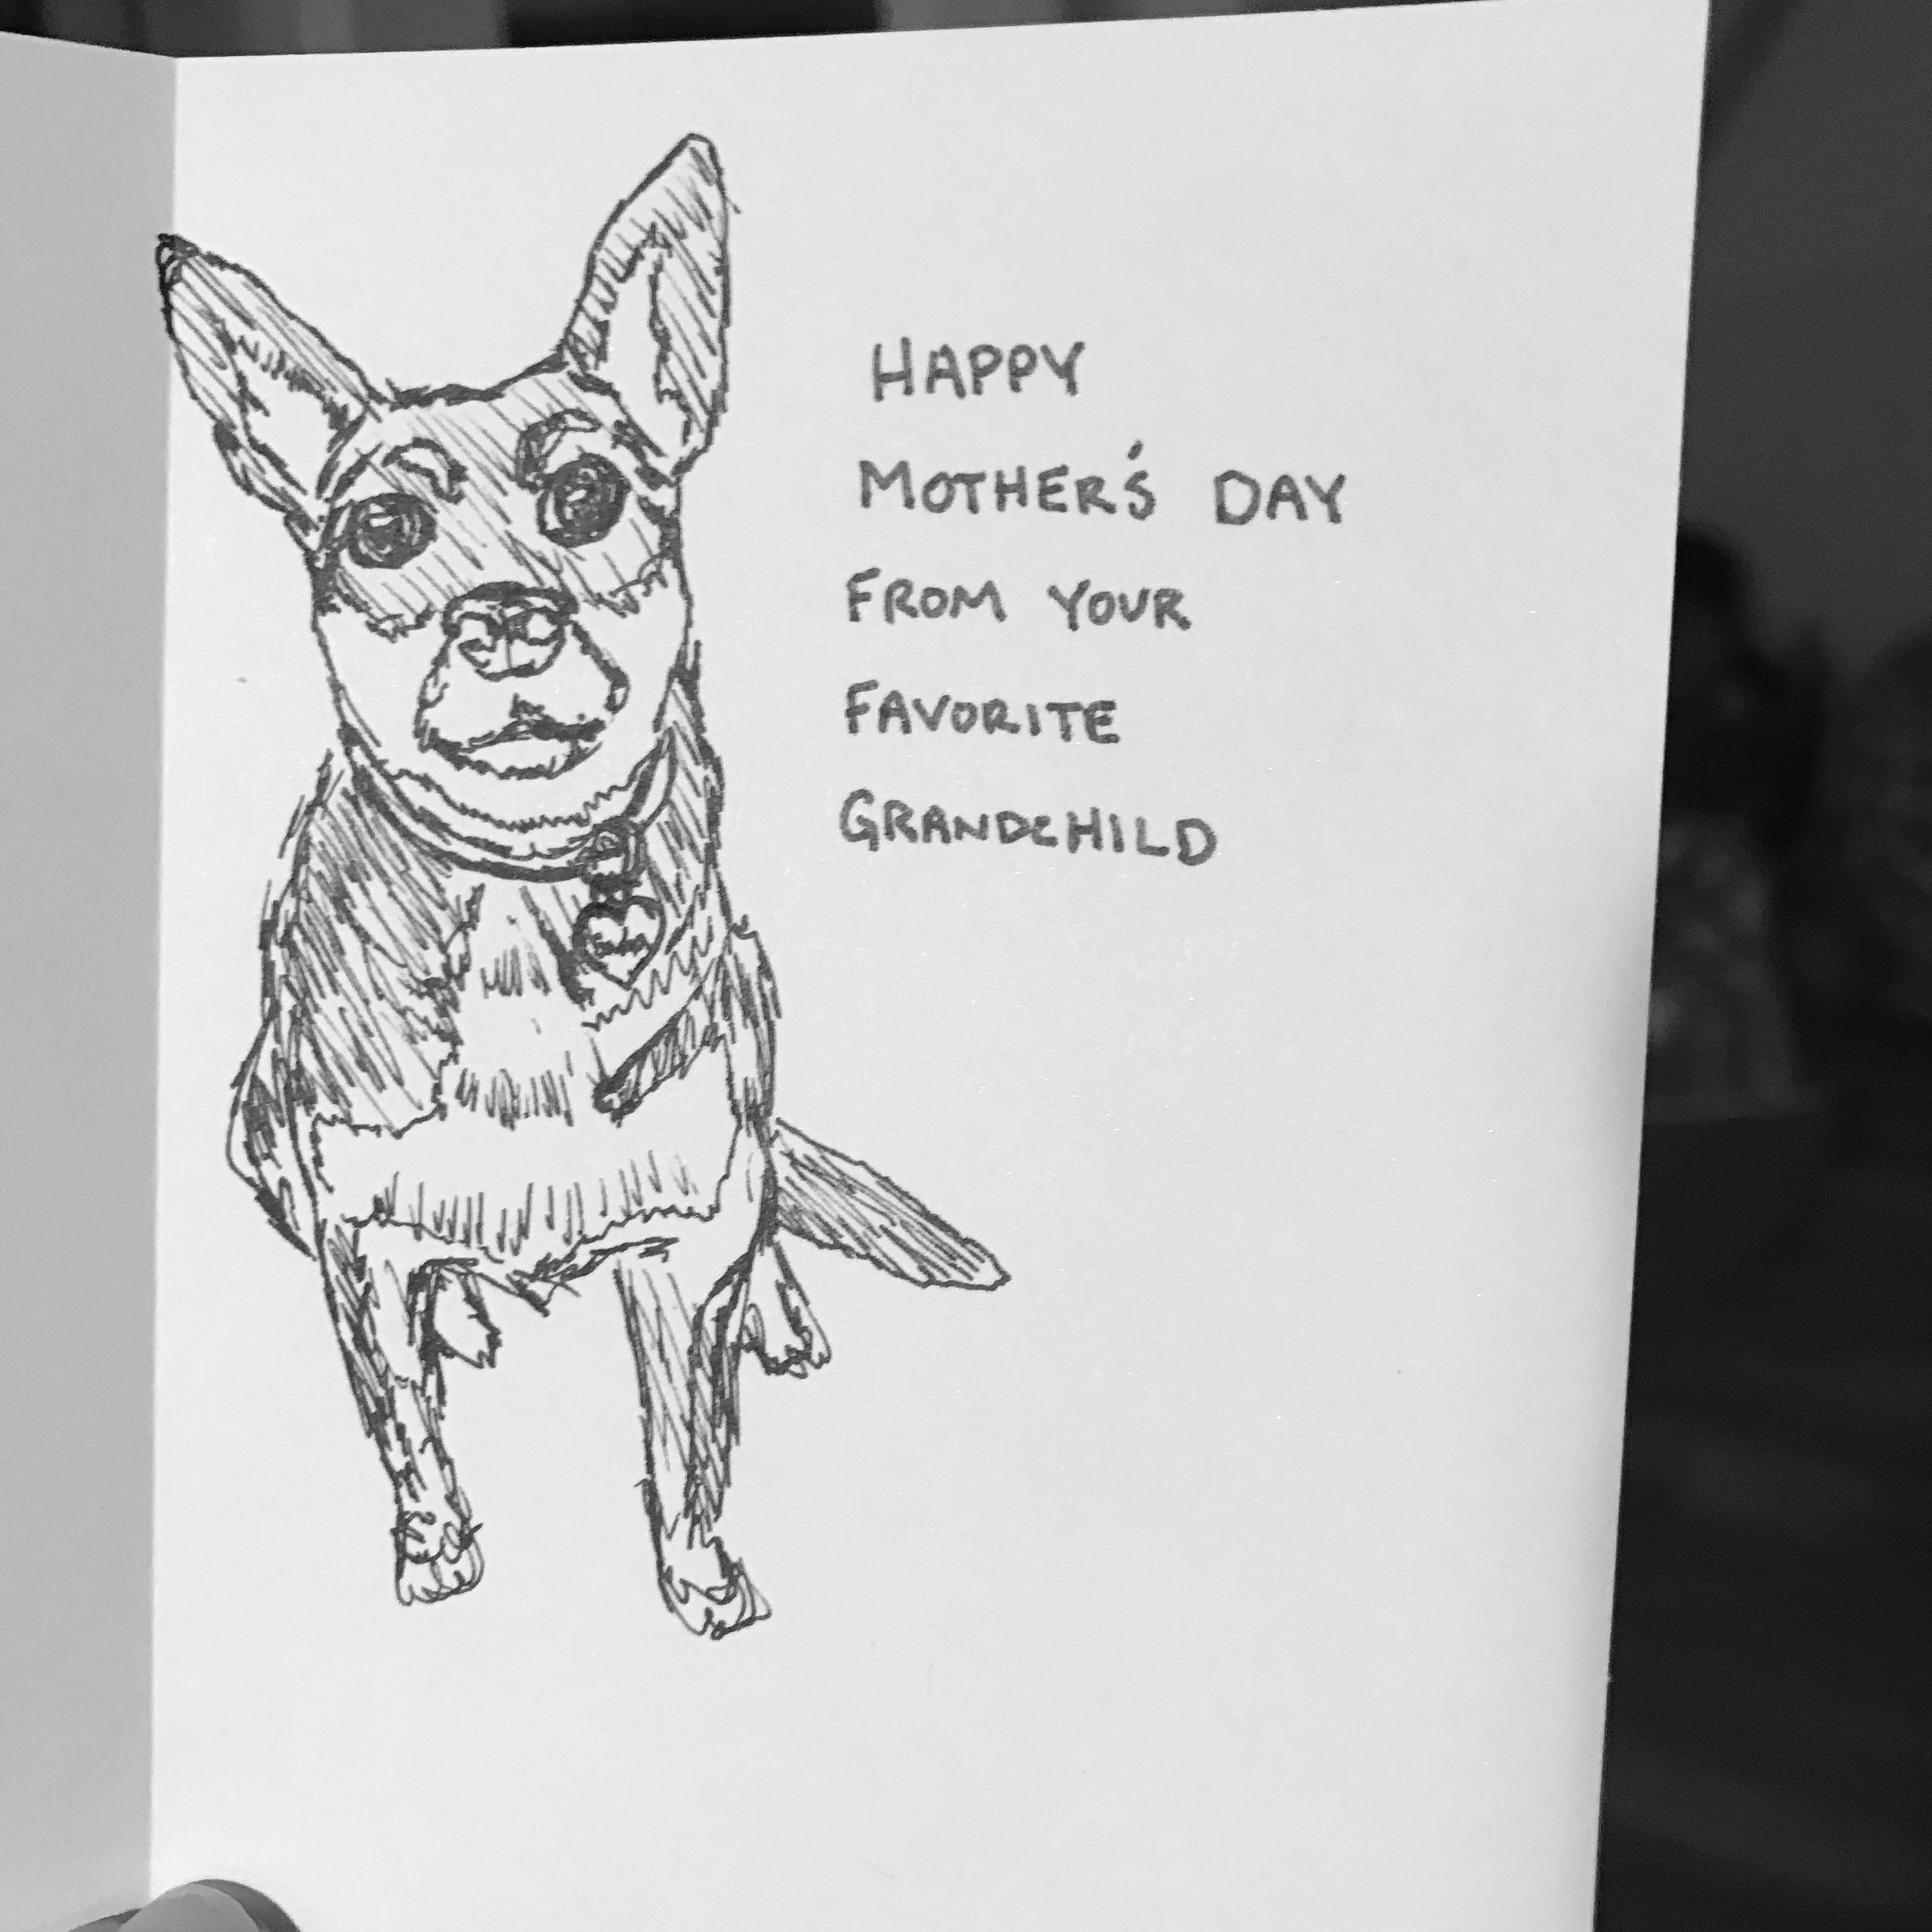 HAPPY
MOTHER'S DAY
FROM YOUR
FAVORITE
GRANDCHILD